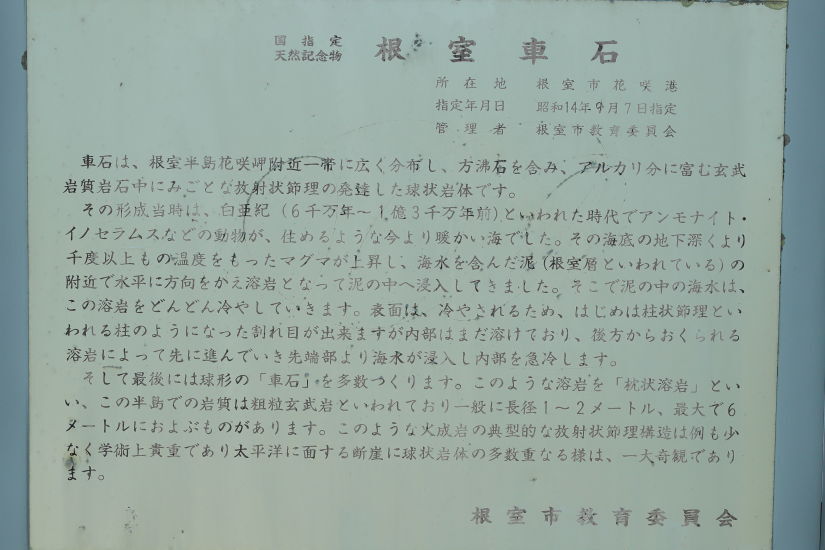 国指定
天然記念物
根室車石
所在地 根室市花咲港
指定年月日 昭和14年9月7日指定
管理者 根室市教育委員会
車石は、根室半島花咲岬附近一帯に広く分布し、方沸石を含み、アルカリ分に富む玄武
岩質岩石中にみごとな放射状節理の発達した球状岩体です。
その形成当時は、白亜紀(6千万年~1億3千万年前)といわれた時代でアンモナイト・
イノセラムスなどの動物が、住めるような今より暖かい海でした。その海底の地下深くより
千度以上もの温度をもったマグマが上昇し、海水を含んだ泥(根室層といわれている)の
附近で水平に方向をかえ溶岩となって泥の中へ浸入してきました。そこで泥の中の海水は、
この溶岩をどんどん冷やしていきます。表面は、冷やされるため、はじめは柱状節理とい
われる柱のようになった割れ目が出来ますが内部はまだ溶けており、後方からおくられる
溶岩によって先に進んでいき先端部より海水が浸入し内部を急冷します。
そして最後には球形の「車石」を多数つくります。このような溶岩を「枕状溶岩」とい
い、この半島での岩質は粗粒玄武岩といわれており一般に長径1~2メートル、最大で6
メートルにおよぶものがあります。このような火成岩の典型的な放射状節理構造は例も少
なく学術上貴重であり太平洋に面する断崖に球状岩体の多数重なる様は、一大奇観であり
ます。
根室市教育委員会